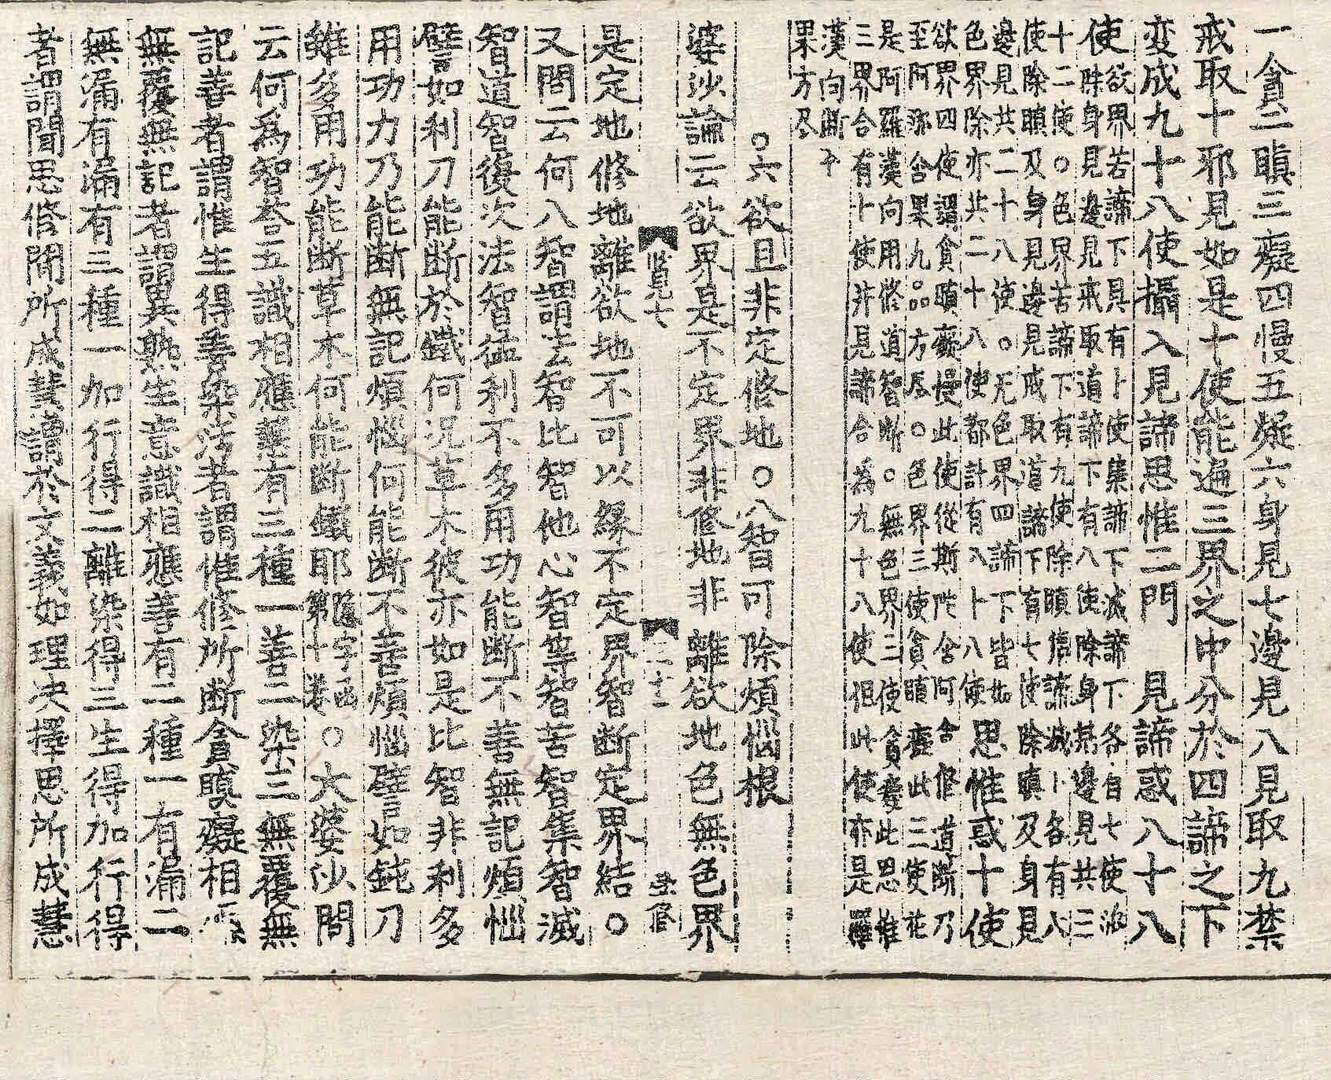 一貪二瞋三癡四慢五疑六身見七邊見八見取九禁
戒取十邪見如是十使能遍三界之中分於四諦之下
変成九十八使攝入見諦思惟二門 見諦惑八十八
使欲界若諦下具有卜使集諦下滅諦下各自七使
除身見邊見戒取道諦下有八使除身見邊見共三
十二使〇色界苦諦下有九使除瞋
使除瞋及身見邊見戒取道諦下有七使除瞋及身見
邊見共二十八使〇无色界四諦下皆如
色界除亦共二十八使都計有八卜八使 思惟惑十使
欲界四使謂貪瞋癡慢此使從斯陀含阿含修道断乃
至阿那含果九品方尽〇色界三使貪慢癡此三使
是阿羅漢向用修道智断〇無色界三使貪癡此思惟
三界合有卜使并見諦合為九十八使但此使亦是羅
漢向断
果方尽
〇六欲且非定修地〇八智可除煩惱根
婆沙論云欲界是不定界非修地非離欲地色無色界
是定地修地離欲地不可以緣不定界智斷定界結〇
又問云何八智謂法智比智他心智等智苦智集智滅
智道智復次法智猛利不多用功能断不善無記煩惱
譬如利刀能断於鐵何況草木彼亦如是比智非利多
用功力乃能断無記煩惱何能断不善煩惱譬如鈍刀
雖多用功能断草木何能断鐵耶 隱字函第十卷 〇大婆沙問
云何為智荅五識相應慧有三種一善二染三無覆無
記善者謂惟生得善染汚者謂惟修所断貪瞋癡相應
無覆無記者謂異熟生意識相應善有二種一有漏二
無漏有漏有三種一加行得二離染得三生得加行得
者謂聞思修聞所成慧謂於文義如理决擇思所成慧